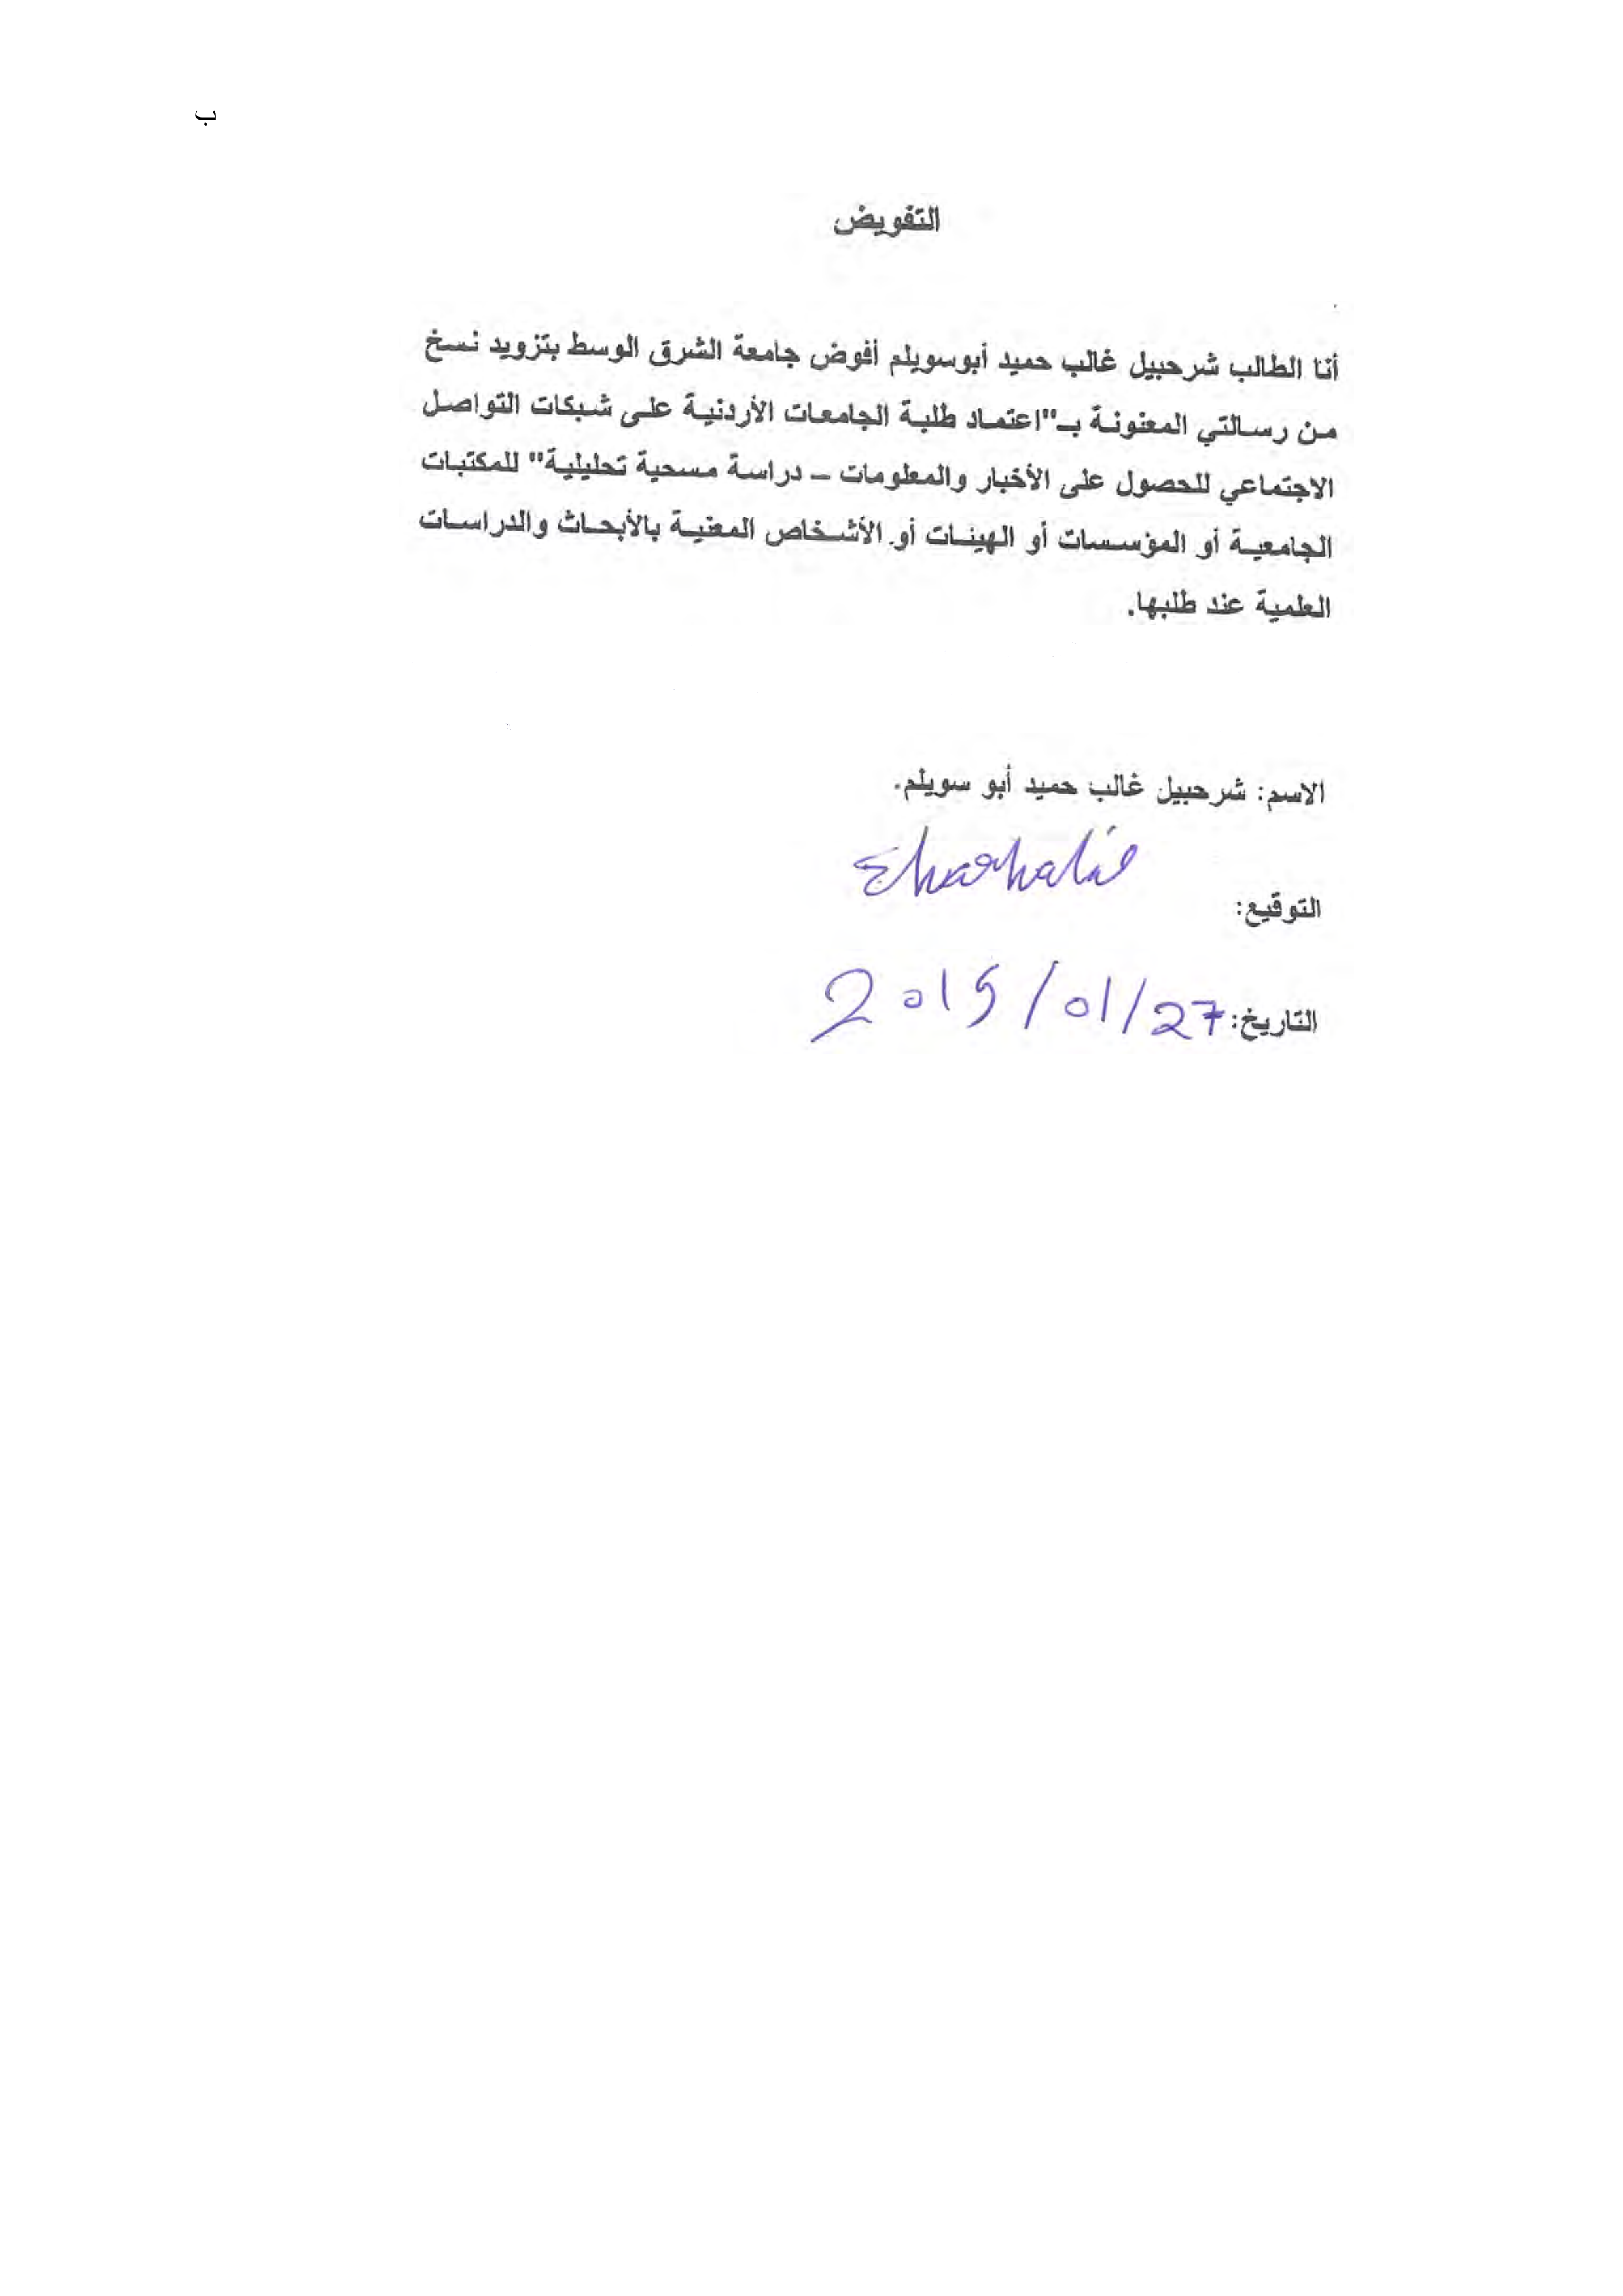 ب
التفويض
أنا الطالب شرحبيل غالب حميد أبوسويلم أفوض جامعة الشرق الوسط بتزويد نسخ
من رسالتي المعنونة بـ"اعتماد طلبة الجامعات الأردنية على شبكات التواصل
الاجتماعي للحصول على الأخبار والمعلومات – دراسة مسحية تحليلية" للمكتبات
الجامعية أو المؤسسات أو الهيئات أو الأشخاص المعنية بالأبحاث والدراسات
العلمية عند طلبها.
الاسم: شرحبيل غالب حميد أبو سويلم.
التوقيع:
التاريخ: 2015/01/27